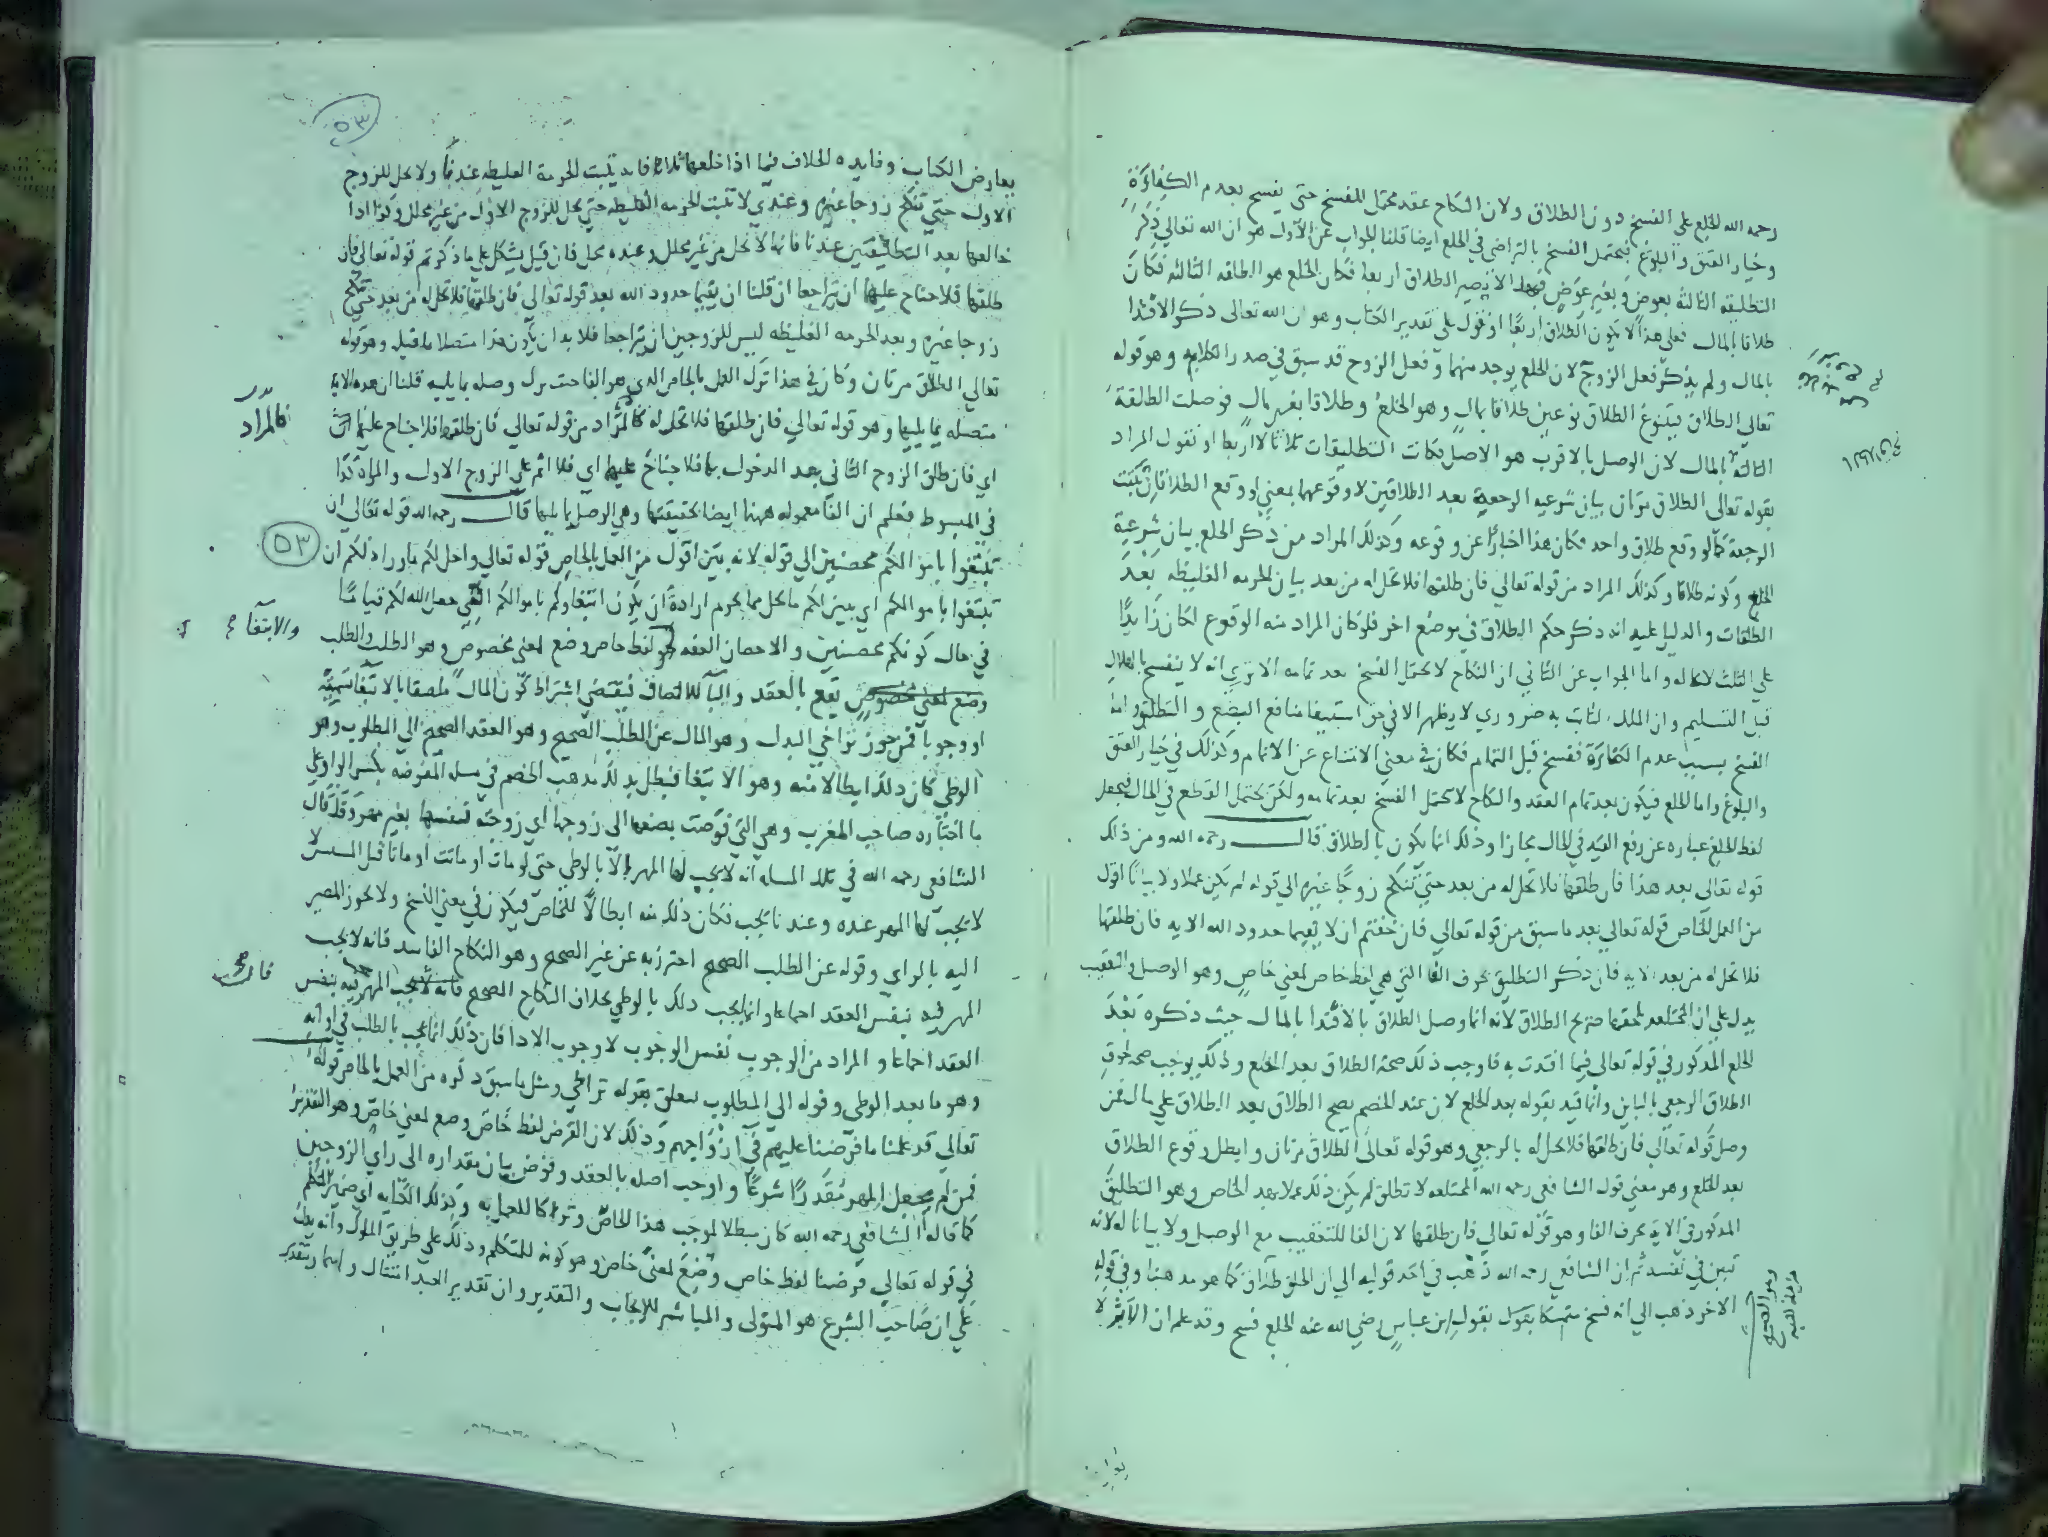 رحمه الله الخلع على الفسخ دون الطلاق ولان النكاح عقد محتمل للفسخ حتى يفسخ بعدم الكفاءة
وخيار العتق والبلوغ فيحتمل الفسخ بالتراضي في الخلع ايضا قلنا الجواب عن الاول هو ان الله تعالى ذكر
التطليقة الثالثة بعوض وبغير عوض فبهذا لا يصير الطلاق اربعا فكان الخلع هو الطلقة الثالثة فكان
طلاقا بالمال فعلى هذا لا يكون الطلاق اربعا او نقول على تقدير الكتاب وهو ان الله تعالى ذكر الافتدا
بالمال ولم يذكر فعل الزوج لان الخلع يوجد منهما وفعل الزوج قد سبق في صدر الكلام وهو قوله
تعالى الطلاق فيتنوع الطلاق نوعين طلاقا بمال وهو الخلع وطلاقا بغير مال فوصلت الطلقة
الثالثة بالمال لان الوصل بالاقرب هو الاصل فكانت التطليقات ثلاثا لا اربعا او نقول المراد
بقوله تعالى الطلاق مرتان بيان شرعية الرجعية بعد الطلاقين لا وقوعهما بمعنى لو وقع الطلاقان ثبتت
الرجعة كما لو وقع طلاق واحد فكان هذا اخبارا عن وقوعه وكذلك المراد من ذكر الخلع بيان شرعية
الخلع وكونه طلاقا وكذلك المراد من قوله تعالى فان طلقها فلا تحل له من بعد بيان الحرمة الغليظة بعد
الطلقات والدليل عليه انه ذكر حكم الطلاق في موضع اخر فلو كان المراد منه الوقوع لكان زايدا
على الثلث لا محالة واما الجواب عن الثاني ان النكاح لا يحتمل الفسخ بعد تمامه الا ترى انه لا ينفسخ بالهلاك
قبل التسليم وان الملك الثابت به ضروري لا يظهر الا في حق استيفا منافع البضع والتطليق واما
الفسخ بسبب عدم الكفاءة ففسخ قبل التمام فكان في معنى الامتناع عن الاتمام وكذلك في خيار العتق
والبلوغ واما الخلع فيكون بعد تمام العقد والنكاح لا يحتمل الفسخ بعد تمامه ولكن يحتمل القطع في الحال فيجعل
لفظ الخلع عبارة عن رفع القيد في الحال مجازا وذلك انما يكون بالطلاق قال رحمه الله ومن ذلك
قوله تعالى بعد هذا فان طلقها فلا تحل له من بعد حتى تنكح زوجا غيره الى قوله لم يكن عملا ولا بيانا اقول
من العمل بالخاص قوله تعالى بعد ما سبق من قوله تعالى فان خفتم ان لا يقيما حدود الله الاية فان طلقها
فلا تحل له من بعد الاية فان ذكر التطليق بحرف الفا التي هي لفظ خاص لمعنى خاص وهو الوصل والتعقيب
يدل على ان المختلعة يلحقها صريح الطلاق لانه انما وصل الطلاق بالافتدا بالمال حيث ذكره بعد
الخلع المذكور في قوله تعالى فيما افتدت به فاوجب ذلك صحة الطلاق بعد الخلع وذلك يوجب صحة لحوق
الطلاق الرجعي بالباين وانما قيد بقوله بعد الخلع لان عند الخصم يصح الطلاق بعد الطلاق على مال فمن
وصل قوله تعالى فان طلقها فلا تحل له بالرجعي وهو قوله تعالى الطلاق مرتان وابطل وقوع الطلاق
بعد الخلع وهو معنى قول الشافعي رحمه الله المختلعة لا تطلق لم يكن ذلك عملا بهذا الخاص وهو التطليق
المذكور في الاية بحرف الفا وهو قوله تعالى فان طلقها لان الفا للتعقيب مع الوصل ولا بيانا له لانه
تبين في نفسه ثم ان الشافعي رحمه الله ذهب في احد قوليه الى ان الخلع طلاق كما هو مذهبنا وفي قوله
الاخر ذهب الى انه فسخ متمسكا بقول ابن عباس رضي الله عنه الخلع فسخ وقد علم ان الاثر لا
٥٣
يعارض الكتاب وفايدة الخلاف فيما اذا خلعها ثلاثا فانه تثبت الحرمة الغليظة عندنا ولا تحل للزوج
الاول حتى تنكح زوجا غيره وعنده لا تثبت الحرمة الغليظة حتى تحل للزوج الاول من غير محلل وكذا اذا
خالعها بعد التطليقتين عندنا فانه لا تحل من غير محلل وعنده تحل فان قيل يشكل على ما ذكرتم قوله تعالى فان
طلقها فلا جناح عليهما ان يتراجعا ان ظنا ان يقيما حدود الله بعد قوله تعالى فان طلقها فلا تحل له من بعد حتى تنكح
زوجا غيره وبعد الحرمة الغليظة ليس للزوجين ان يتراجعا فلا بد ان يكون هذا متصلا بما قبله وهو قوله
تعالى الطلاق مرتان وكان في هذا ترك العمل بالخاص الذي هو الفا حيث ترك وصله بما يليه قلنا ان هذه الاية
متصلة بما يليها وهو قوله تعالى فان طلقها فلا تحل له فالمراد من قوله تعالى فان طلقها فلا جناح عليهما
اي فان طلق الزوج الثاني بعد الدخول بها فلا جناح عليهما اي فلا اثم على الزوج الاول والمراة كذا
في المبسوط فعلم ان الفا معموله ههنا ايضا بحقيقتها وهي الوصل بما يليها قال رحمه الله قوله تعالى ان
تبتغوا باموالكم محصنين الى قوله لانه بين اقول من العمل بالخاص قوله تعالى واحل لكم ما وراء ذلكم ان
٥٣
تبتغوا باموالكم اي بين لكم ما يحل مما يحرم ارادة ان يكون ابتغاوكم باموالكم التي جعل الله لكم قياما
في حال كونكم محصنين والاحصان العفة لفظ خاص وضع لمعنى مخصوص وهو الطلب والطلب
والابتغا
وضع لمعنى مخصوص يقع بالعقد والبا للالصاق فيقتضي اشتراط كون المال ملصقا بالابتغا تسمية
او وجوبا فمن جوز تراخي البدل وهو المال عن الطلب الصحيح وهو العقد الصحيح الى المطلوب وهو
الوطي كان ذلك ابطالا منه وهو الابتغا فبطل بذلك مذهب الخصم في مسلة المفوضة بكسر الواو على
ما اختاره صاحب المغرب وهي التي فوضت بضعها الى زوجها اي زوجته نفسها بغير مهر وقد قال
الشافعي رحمه الله في تلك المسلة انه لا يجب لها المهر الا بالوطي حتى لو مات او ماتت او ماتا قبل المسيس
لا يجب لها المهر عنده وعندنا يجب فكان ذلك منه ابطالا للخاص فيكون في معنى النسخ ولا يجوز المصير
اليه بالراي وقوله عن الطلب الصحيح احترز به عن غير الصحيح وهو النكاح الفاسد فانه لا يجب
المهر فيه بنفس العقد اجماعا وانما يجب ذلك بالوطي بخلاف النكاح الصحيح فانه يجب المهر فيه بنفس
العقد اجماعا والمراد من الوجوب نفس الوجوب لا وجوب الادا فان ذلك انما يجب بالطلب في اوانه
وهو ما بعد الوطي وقوله الى المطلوب يتعلق بقوله تراخي ومثل ما سبق ذكره من العمل بالخاص قوله
تعالى قد علمنا ما فرضنا عليهم في ازواجهم وذلك لان الفرض لفظ خاص وضع لمعنى خاص وهو التقدير
فمن لم يجعل المهر مقدرا شرعا واوجب اصله بالعقد وفوض بيان مقداره الى راي الزوجين
كما قاله الشافعي رحمه الله كان مبطلا لموجب هذا الخاص وتركا للعمل به وكذلك الكناية اي ضمير المتكلم
في قوله تعالى فرضنا لفظ خاص وضع لمعنى خاص وهو كونه للمتكلم وذلك على طريق الملوك وانه يدل
على ان صاحب الشرع هو المتولي والمباشر للايجاب والتقدير وان تقدير العبد امتثال
فالمراد